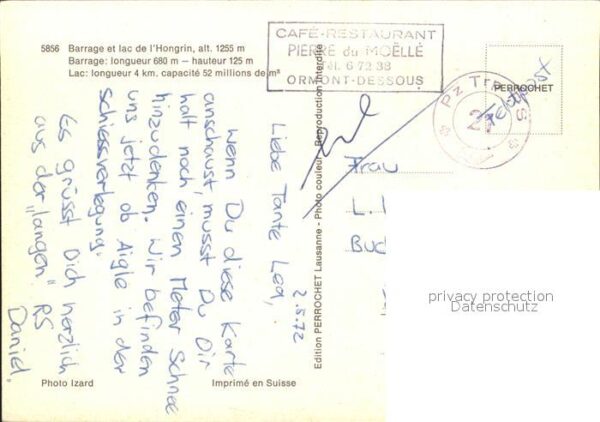 5856 Barrage et lac de l'Hongrin, alt. 1255 m
Barrage: longueur 680 m — hauteur 125 m
Lac: longueur 4 km, capacité 52 millions de m³
CAFÉ-RESTAURANT
PIERRE du MOËLLÉ
Tél. 6 72 38
ORMONT-DESSOUS
PERROCHET
Pz Trp
S
27
Feldpost
2.5.72
Liebe Tante Lea,
Wenn Du diese Karte
anschaust, musst Du Dir
halt noch einen Meter Schnee
hinzudenken. Wir befinden
uns jetzt ob Aigle in der
Schiessverlegung.
Es grüsst Dich herzlich
aus der „langen" RS
Daniel.
Edition PERROCHET Lausanne - Photo couleur - Reproduction interdite
Frau
L.
Buc
privacy protection
Datenschutz
Photo Izard
Imprimé en Suisse